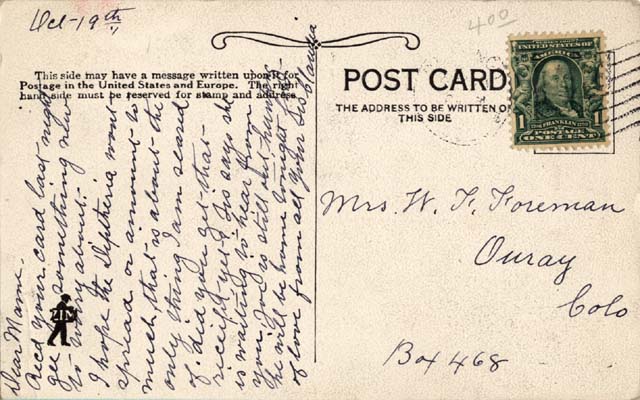 Oct-19th
This side may have a message written upon it for
Postage in the United States and Europe. The right
hand side must be reserved for stamp and address.
Dear Mame.
Rec'd your card last night
gee something new
to worry about-
I hope the Diptheria wont
spread or amount to
much, that is about the
only thing I am scared
of. did you get that-
yet Sis says she
is waiting to hear from
you, Joe is still out hunting
he will be home tonight
love from all your Sis
POST CARD
THE ADDRESS TO BE WRITTEN ON
THIS SIDE
400
UNITED STATES OF AMERICA
1 FRANKLIN 1
POSTAGE
ONE CENT
Mrs. W. F. Foreman
Ouray
Colo
Box 468
ZIM